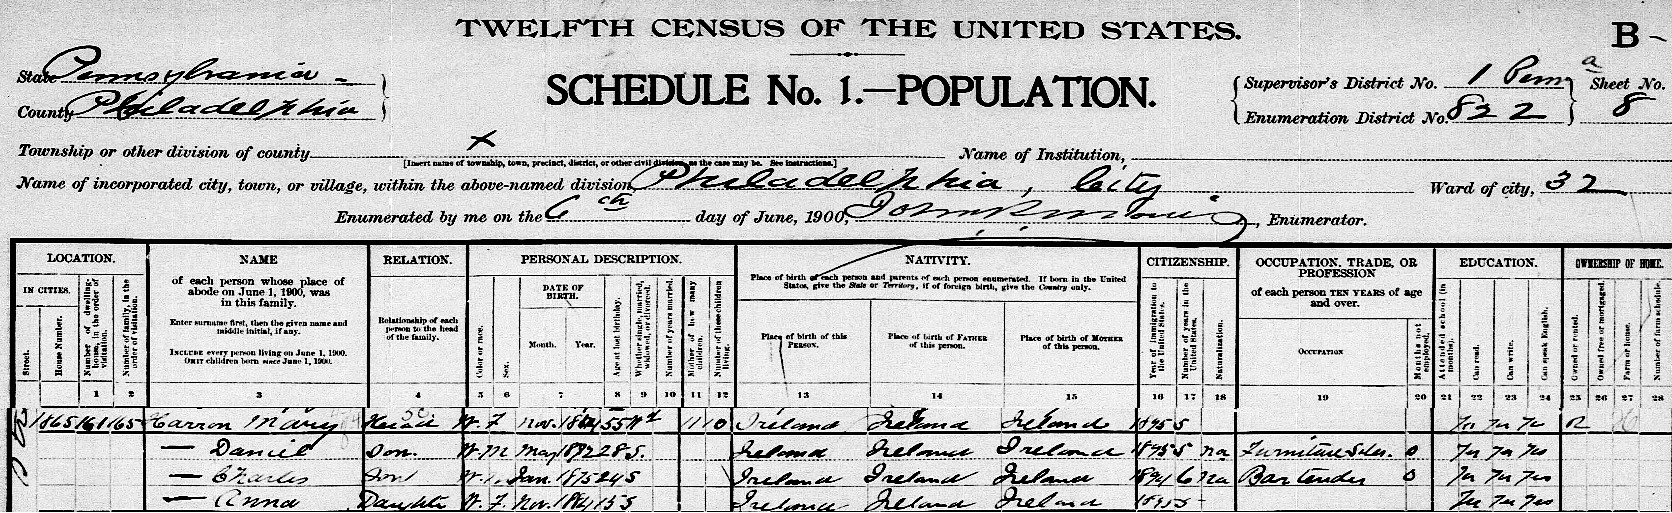 TWELFTH CENSUS OF THE UNITED STATES.
B-
State Pennsylvania -
SCHEDULE No. 1.—POPULATION.
Supervisor's District No. 1 Penna
Sheet No.
County Philadelphia
Enumeration District No. 822
8
Township or other division of county x
[Insert name of township, town, precinct, district, or other civil division, as the case may be. See instructions.]
Name of Institution,
Name of incorporated city, town, or village, within the above-named division, Philadelphia, City
Ward of city, 32
Enumerated by me on the 6th day of June, 1900, Enumerator.
LOCATION. NAME RELATION. PERSONAL DESCRIPTION. NATIVITY. CITIZENSHIP. OCCUPATION, TRADE, OR PROFESSION EDUCATION. OWNERSHIP OF HOME.
IN CITIES.
Street.
House Number.
Number of dwelling-house, in the order of visitation.
Number of family, in the order of visitation.
of each person whose place of abode on June 1, 1900, was in this family.
Enter surname first, then the given name and middle initial, if any.
INCLUDE every person living on June 1, 1900.
OMIT children born since June 1, 1900.
Relationship of each person to the head of the family.
Color or race.
Sex.
DATE OF BIRTH.
Month. Year.
Age at last birthday.
Whether single, married, widowed, or divorced.
Number of years married.
Mother of how many children.
Number of these children living.
Place of birth of each person and parents of each person enumerated. If born in the United States, give the State or Territory; if of foreign birth, give the Country only.
Place of birth of this PERSON.
Place of birth of FATHER of this person.
Place of birth of MOTHER of this person.
Year of immigration to the United States.
Number of years in the United States.
Naturalization.
of each person TEN YEARS of age and over.
OCCUPATION
Months not employed.
Attended school (in months).
Can read.
Can write.
Can speak English.
Owned or rented.
Owned free or mortgaged.
Farm or house.
Number of farm schedule.
1 2 3 4 5 6 7 8 9 10 11 12 13 14 15 16 17 18 19 20 21 22 23 24 25 26 27 28
1865 161 165 Harron Mary Head W. F. Nov. 55 Wd 11 10 Ireland Ireland Ireland 1895 5 Yes Yes Yes R
— Daniel Son. W. M May 28 S. Ireland Ireland Ireland 1895 5 na Furniture Sales. 0 Yes Yes Yes
— Charles Son W. Jan. 1875 24 S Ireland Ireland Ireland 1894 6 na Bartender 0 Yes Yes Yes
— Anna Daughter W. F. Nov. 1884 15 S Ireland Ireland Ireland 1895 5 Yes Yes Yes